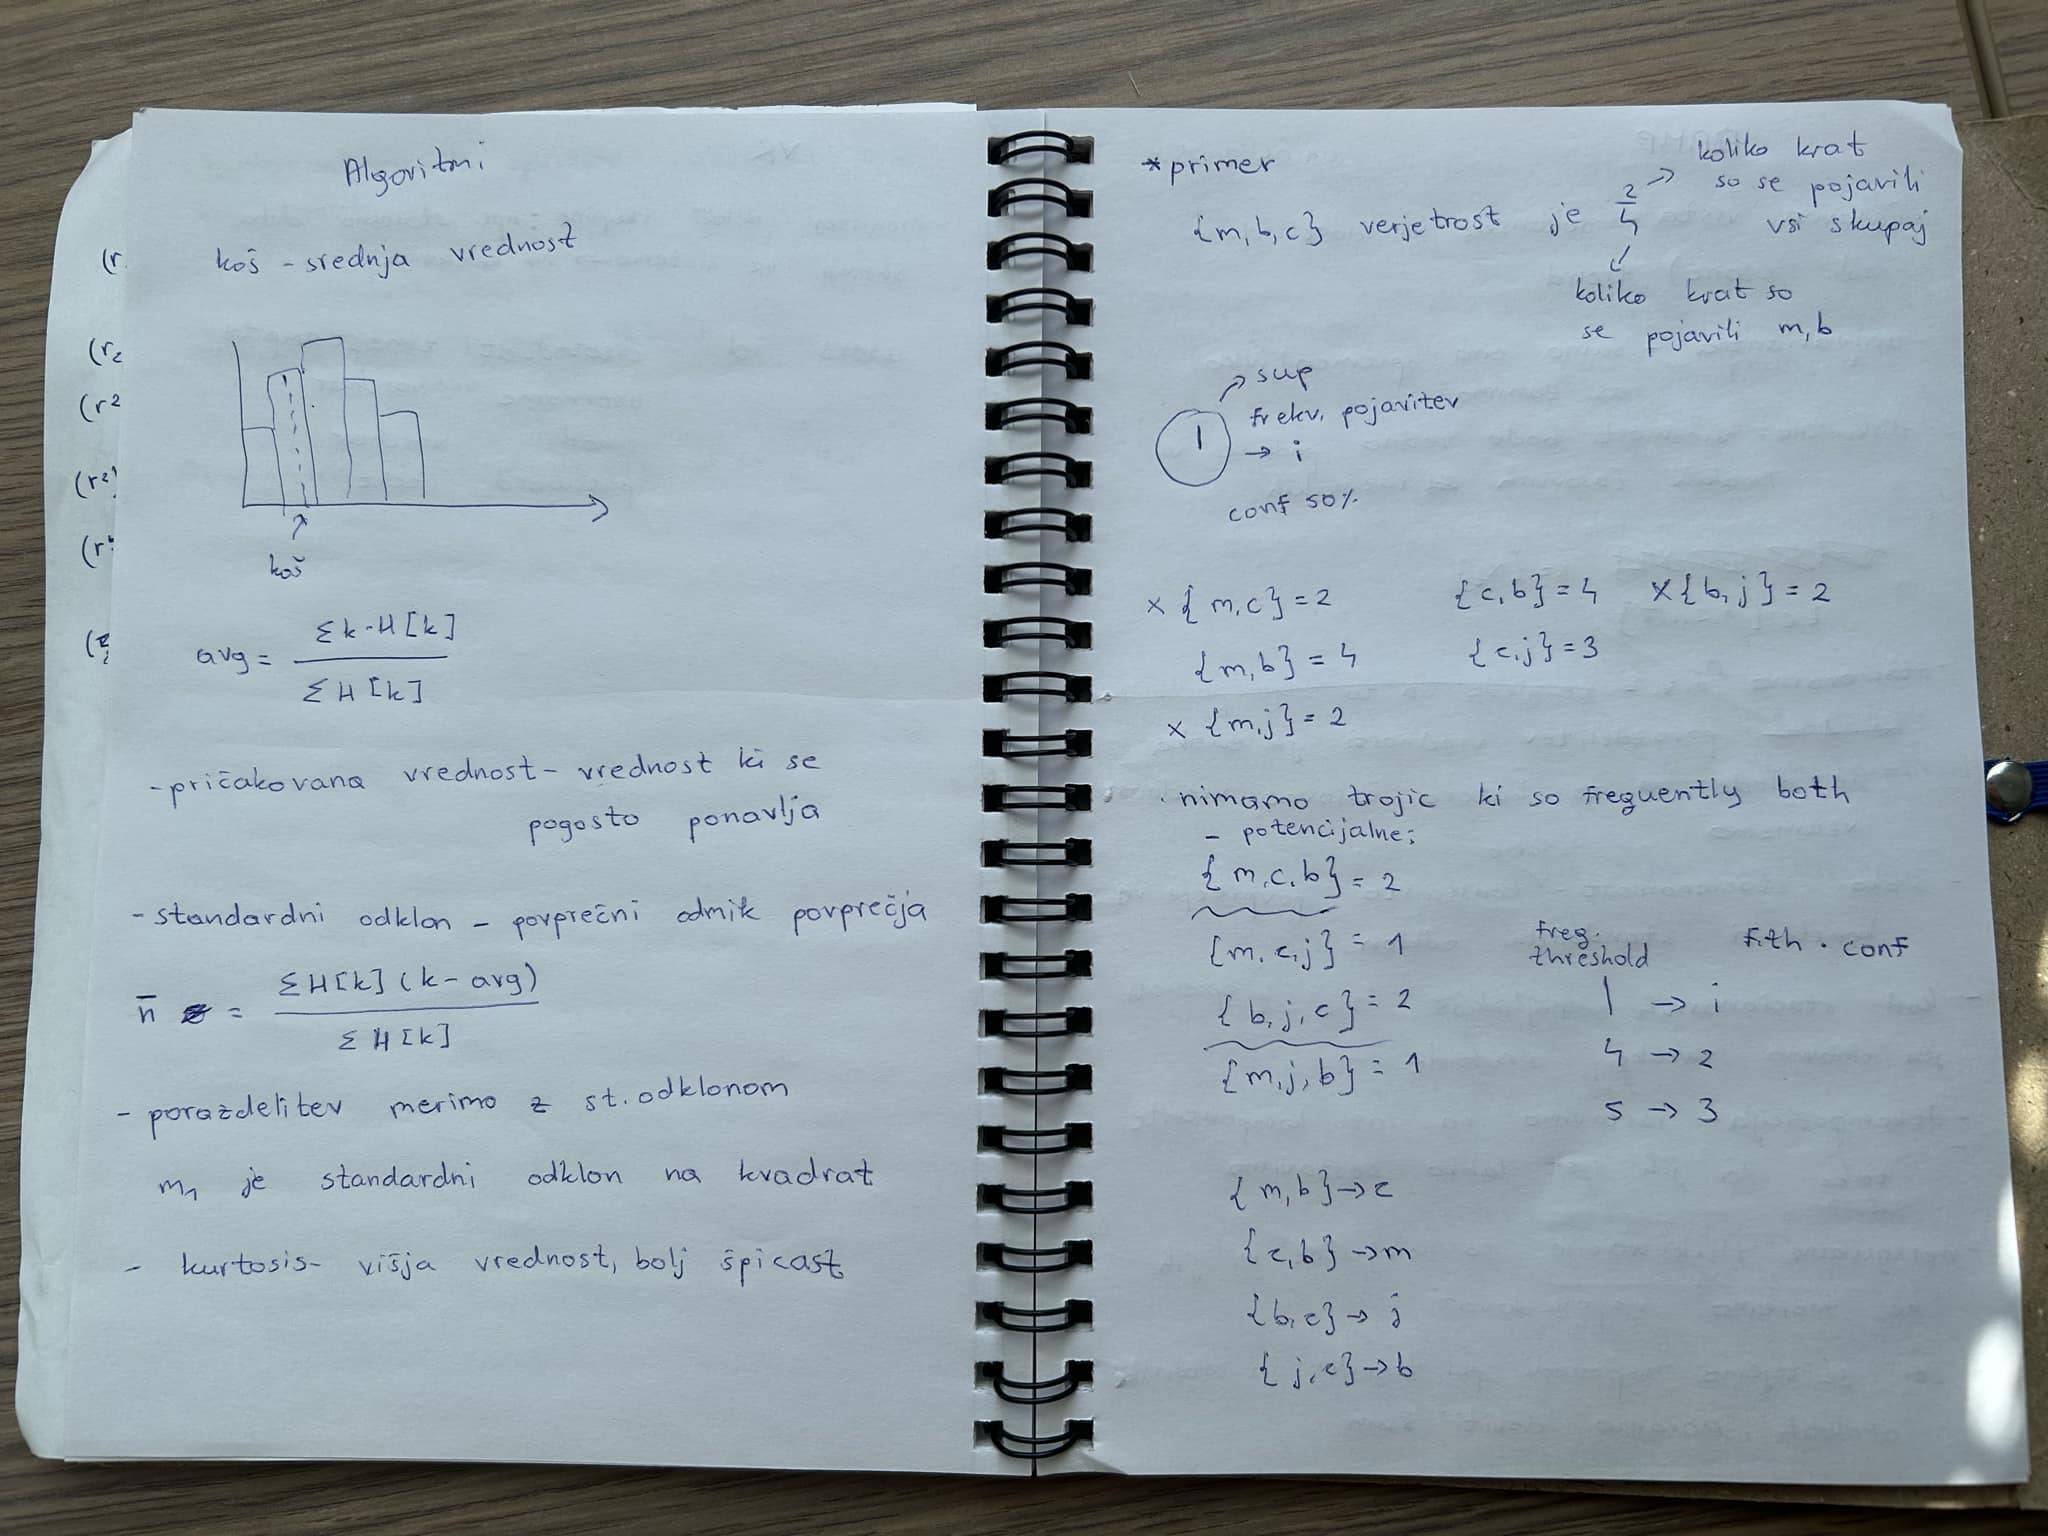 Algoritmi
koš - srednja vrednost
koš
avg = Σk·H[k] / ΣH[k]
- pričakovana vrednost - vrednost ki se
pogosto ponavlja
- standardni odklon - povprečni odmik povprečja
n̄ = ΣH[k](k-avg) / ΣH[k]
- porazdelitev merimo z st. odklonom
m₁ je standardni odklon na kvadrat
- kurtosis - višja vrednost, bolj špicast
(r
(r₂
(r²
(r²
* primer
{m,b,c} verjetrost je 2/4
→ koliko krat
so se pojavili
vsi skupaj
koliko krat so
se pojavili m,b
1
→ sup
frekv. pojavitev
→ i
conf 50%
x {m,c} = 2 {c,b} = 4 x {b,j} = 2
{m,b} = 4 {c,j} = 3
x {m,j} = 2
· nimamo trojic ki so frequently both
- potencijalne:
{m,c,b} = 2
{m,c,j} = 1
{b,j,c} = 2
{m,j,b} = 1
freq.
threshold
f.th · conf
1 → i
4 → 2
5 → 3
{m,b} → c
{c,b} → m
{b,c} → j
{j,c} → b